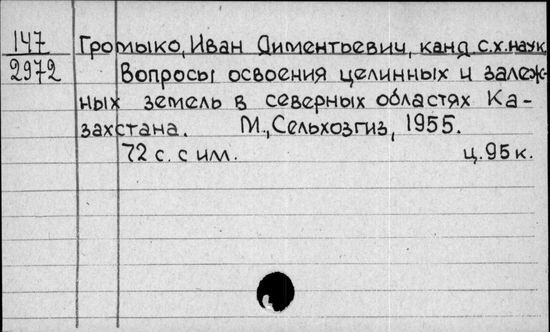 147
2972
Громыко, Иван Диментьевич, канд с.х.наук
Вопросы освоения целинных и залеж-
ных земель в северных областях Ка-
захстана. М., Сельхозгиз, 1955.
72 с. с им. ц. 95 к.